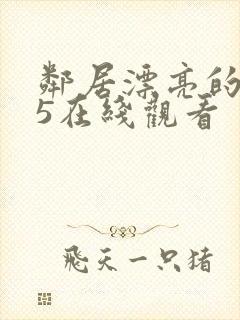 鄰居漂亮的
5在綫觀看
飛天一只猪